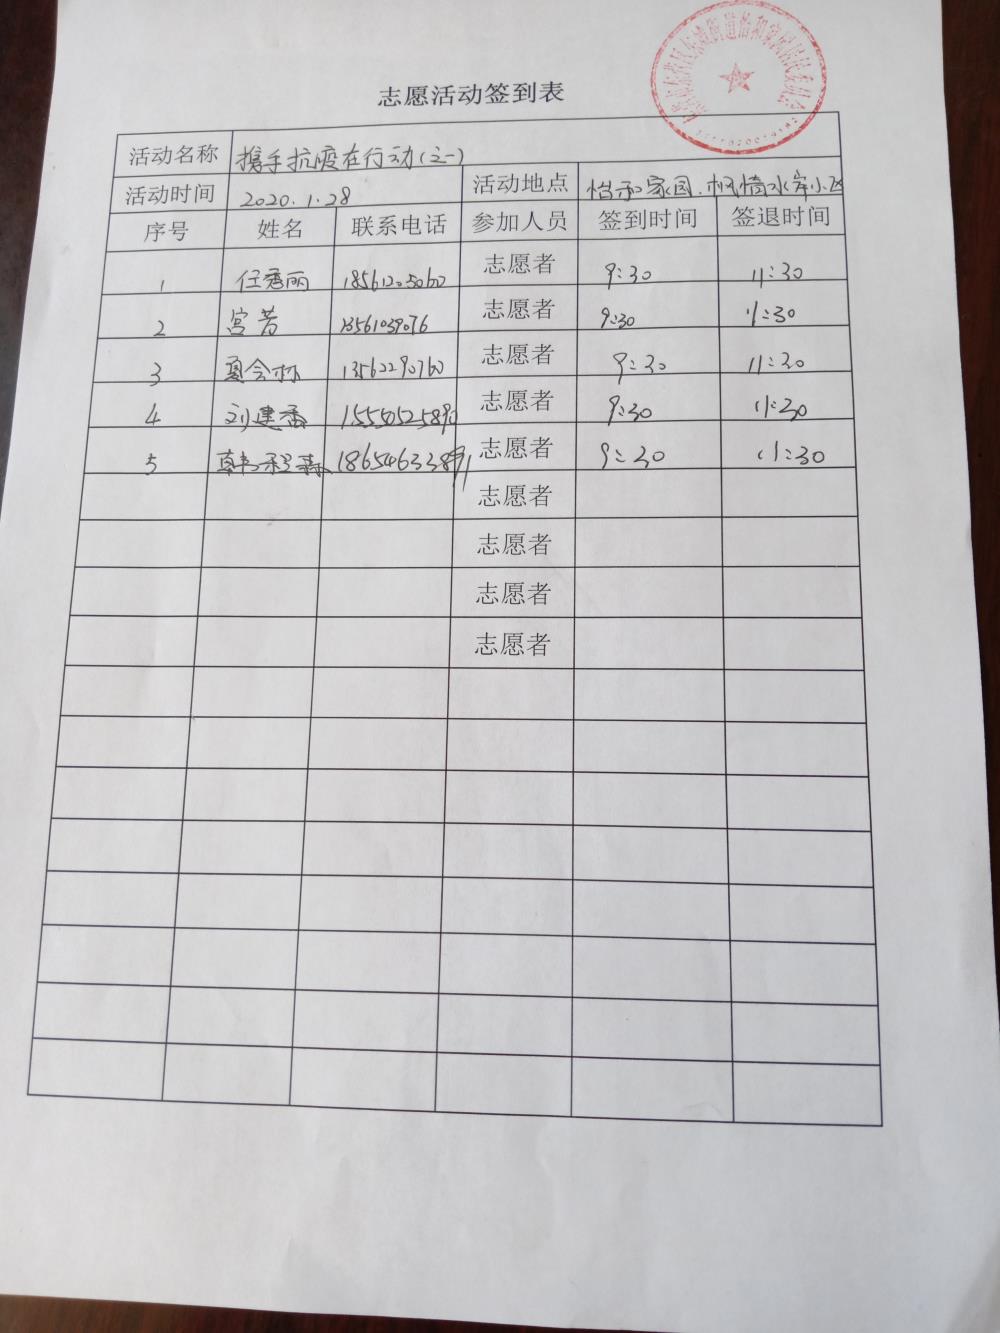 志愿活动签到表
活动名称 携手抗疫在行动(之一)
活动时间 2020.1.28 活动地点 怡和家园.枫情水岸小区
序号 姓名 联系电话 参加人员 签到时间 签退时间
1 任秀丽 志愿者 9:30 11:30
2 宫芳 志愿者 9:30 11:30
3 夏会林 13562290760 志愿者 9:30 11:30
4 刘建香 15554525890 志愿者 9:30 11:30
5 志愿者 9:30 11:30
志愿者
志愿者
志愿者
志愿者